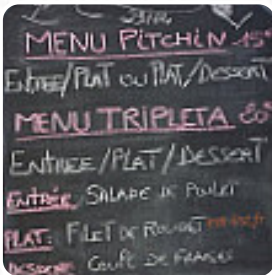 MENU PITCHIN 15€
ENTREE/PLAT OU PLAT/DESSERT
MENU TRIPLETA 20€
ENTREE/PLAT/DESSERT
ENTRÉE: SALADE DE POULET
PLAT: FILET DE ROUGET
DESSERT: COUPE DE FRAISES